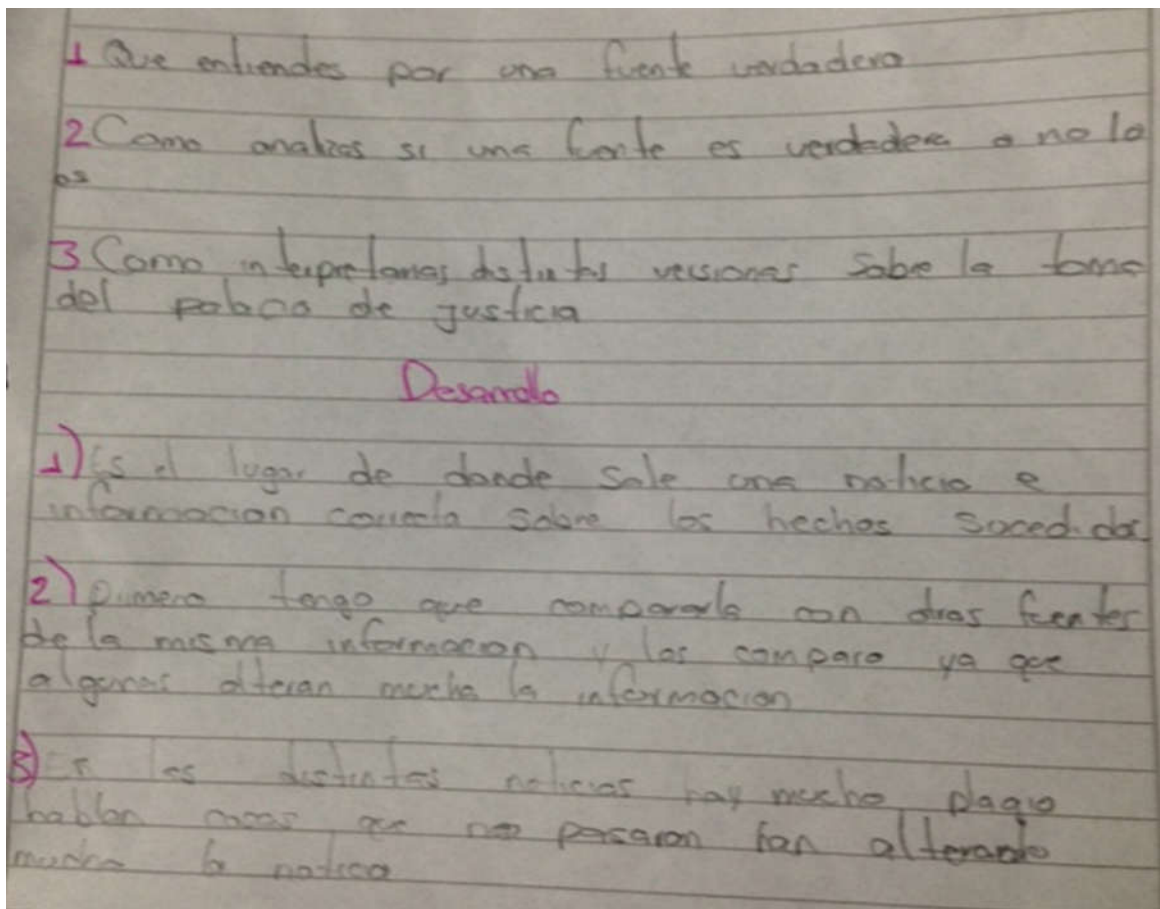 1 Que entiendes por una fuente verdadera
2 Como analizas si una fuente es verdadera o no lo
es
3 Como interpretarias distintas versiones sobre la toma
del palacio de justicia
Desarrollo
1) Es el lugar de donde sale una noticia e
informacion correcta sobre los hechos sucedidos
2) Primero tengo que compararla con otras fuentes
de la misma informacion y las comparo ya que
algunas alteran mucho la informacion
3) En las distintas noticias hay mucho plagio
hablan cosas que no pasaron han alterado
mucho la noticia